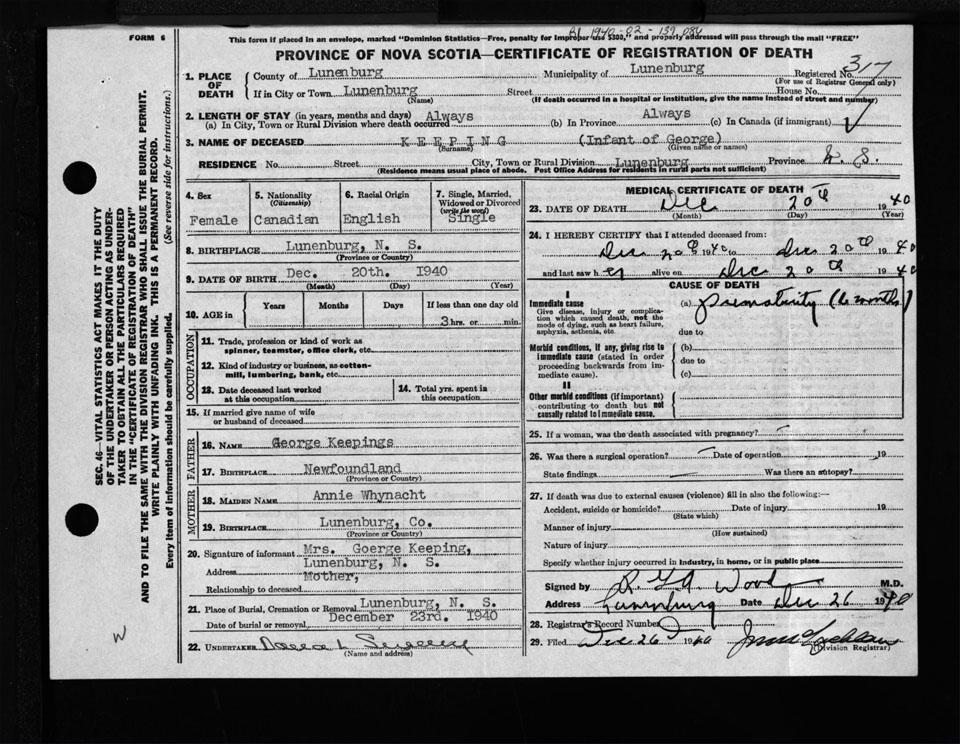 FORM 6
This form if placed in an envelope, marked "Dominion Statistics—Free, penalty for improper use $300," and properly addressed will pass through the mail "FREE"
PROVINCE OF NOVA SCOTIA—CERTIFICATE OF REGISTRATION OF DEATH
SEC. 46—VITAL STATISTICS ACT MAKES IT THE DUTY
OF THE UNDERTAKER OR PERSON ACTING AS UNDER-
TAKER TO OBTAIN ALL THE PARTICULARS REQUIRED
IN THE "CERTIFICATE OF REGISTRATION OF DEATH"
AND TO FILE THE SAME WITH THE DIVISION REGISTRAR WHO SHALL ISSUE THE BURIAL PERMIT.
WRITE PLAINLY WITH UNFADING INK. THIS IS A PERMANENT RECORD.
Every item of information should be carefully supplied. (See reverse side for instructions.)
W
1. PLACE OF DEATH
County of Lunenburg Municipality of Lunenburg Registered No. 317
(For use of Registrar General only)
If in City or Town Lunenburg Street House No.
(Name) (If death occurred in a hospital or institution, give the name instead of street and number)
2. LENGTH OF STAY (in years, months and days)
(a) In City, Town or Rural Division where death occurred Always (b) In Province Always (c) In Canada (if immigrant)
3. NAME OF DECEASED KEEPING (Infant of George)
(Surname) (Given name or names)
RESIDENCE No. Street City, Town or Rural Division Lunenburg Province N. S.
(Residence means usual place of abode. Post Office Address for residents in rural parts not sufficient)
4. Sex
Female
5. Nationality
(Citizenship)
Canadian
6. Racial Origin
English
7. Single, Married,
Widowed or Divorced
(write the word)
Single
8. BIRTHPLACE Lunenburg, N. S.
(Province or Country)
9. DATE OF BIRTH Dec. 20th. 1940
(Month) (Day) (Year)
10. AGE in
Years Months Days If less than one day old
3 hrs. or min.
OCCUPATION
11. Trade, profession or kind of work as
spinner, teamster, office clerk, etc.
12. Kind of industry or business, as cotton-
mill, lumbering, bank, etc.
13. Date deceased last worked
at this occupation
14. Total yrs. spent in
this occupation
15. If married give name of wife
or husband of deceased
FATHER
16. NAME George Keepings
17. BIRTHPLACE Newfoundland
(Province or Country)
MOTHER
18. MAIDEN NAME Annie Whynacht
19. BIRTHPLACE Lunenburg, Co.
(Province or Country)
20. Signature of informant Mrs. Goerge Keeping,
Address Lunenburg, N. S.
Relationship to deceased Mother,
21. Place of Burial, Cremation or Removal Lunenburg, N. S.
Date of burial or removal December 23rd. 1940
22. UNDERTAKER
(Name and address)
MEDICAL CERTIFICATE OF DEATH
23. DATE OF DEATH Dec 20th 1940
(Month) (Day) (Year)
24. I HEREBY CERTIFY that I attended deceased from:
Dec 20th 1940 to Dec 20th 1940
and last saw her alive on Dec 20th 1940
CAUSE OF DEATH
I
Immediate cause
Give disease, injury or complica-
tion which caused death, not the
mode of dying, such as heart failure,
asphyxia, asthenia, etc.
(a) prematurity (6 months)
due to
Morbid conditions, if any, giving rise to
immediate cause (stated in order
proceeding backwards from im-
mediate cause).
(b)
due to
(c)
II
Other morbid conditions (if important)
contributing to death but not
causally related to immediate cause.
25. If a woman, was the death associated with pregnancy?
26. Was there a surgical operation? Date of operation 19
State findings Was there an autopsy?
27. If death was due to external causes (violence) fill in also the following:—
Accident, suicide or homicide? Date of injury 19
(State which)
Manner of injury
(How sustained)
Nature of injury
Specify whether injury occurred in industry, in home, or in public place
Signed by R G A Wood M.D.
Address Lunenburg Date Dec 26 1940
28. Registrar's Record Number
29. Filed Dec 26 1940
(Division Registrar)